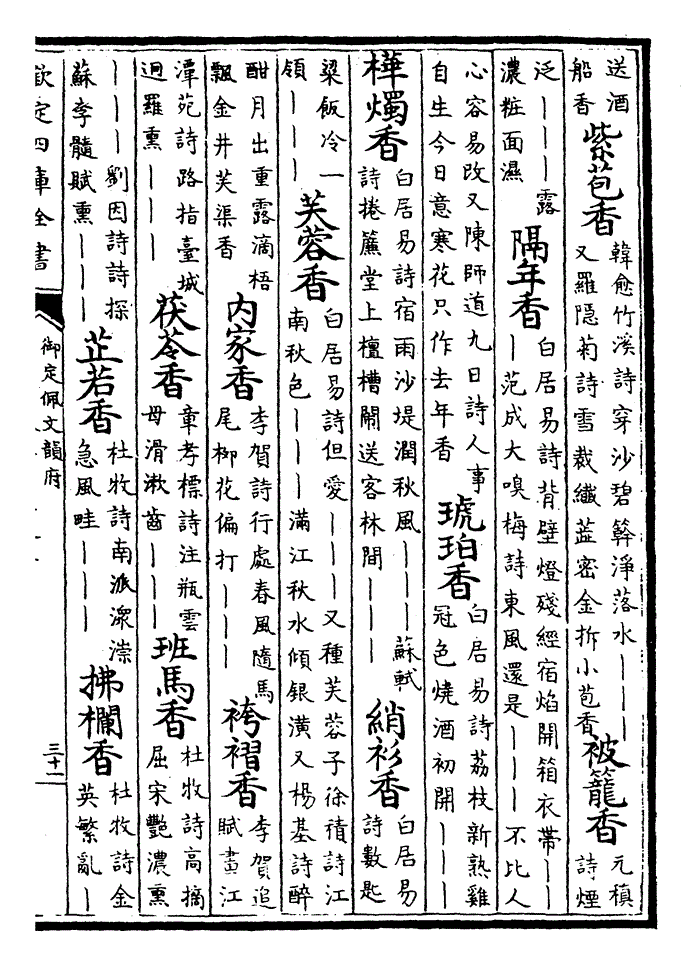 送酒船香 紫苞香 韓愈竹溪詩穿沙碧簳淨落水｜｜｜又羅隐菊詩雪裁纎蕋密金拆小苞香 被籠香 元稹詩煙
泛｜｜｜露濃粧面濕 隔年香 白居易詩背壁燈殘經宿焰開箱衣帶｜｜｜范成大嗅梅詩東風還是｜｜｜不比人
心容易改又陳師道九日詩人事自生今日意寒花只作去年香 琥珀香 白居易詩荔枝新熟雞冠色燒酒初開｜｜｜
樺燭香 白居易詩宿雨沙堤潤秋風｜｜｜蘇軾詩捲簾堂上檀槽閙送客林間｜｜｜ 綃衫香 白居易詩數匙
粱飯冷一領｜｜｜ 芙蓉香 白居易詩但愛｜｜｜又種芙蓉子徐積詩江南秋色｜｜｜滿江秋水傾銀潢又楊基詩醉
酣月出重露滴梧飄金井芙渠香 内家香 李賀詩行處春風隨馬尾栁花偏打｜｜｜ 袴褶香 李賀追賦畫江
潭苑詩路指臺城迥羅熏｜｜｜ 茯苓香 章孝標詩注瓶雲母滑漱齒｜｜｜ 班馬香 杜牧詩高摘屈宋艷濃熏
｜｜｜劉因詩詩探蘇李髓賦熏｜｜｜ 芷若香 杜牧詩南派潀淙急風畦｜｜｜ 拂欄香 杜牧詩金英繁亂｜
欽定四庫全書
御定佩文韻府
三十一